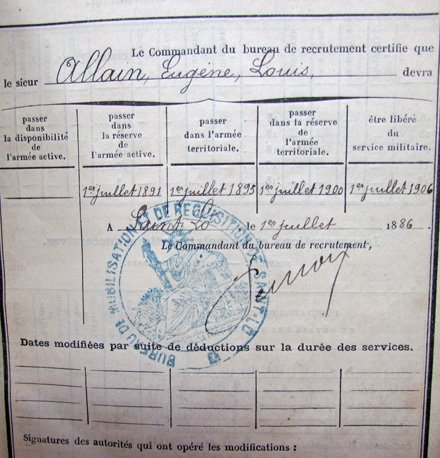 Le Commandant du bureau de recrutement certifie que
le sieur Allain, Eugène, Louis, devra
passer dans la disponibilité de l'armée active.
passer dans la réserve de l'armée active.
passer dans l'armée territoriale.
passer dans la réserve de l'armée territoriale.
être libéré du service militaire.
1er juillet 1891 1er juillet 1895 1er juillet 1900 1er juillet 1906
A Saint Lo, le 1er juillet 1886.
Le Commandant du bureau de recrutement,
BUREAU DE MOBILISATION ET DE REQUISITION DE SAINT-LO
Dates modifiées par suite de déductions sur la durée des services.
Signatures des autorités qui ont opéré les modifications :